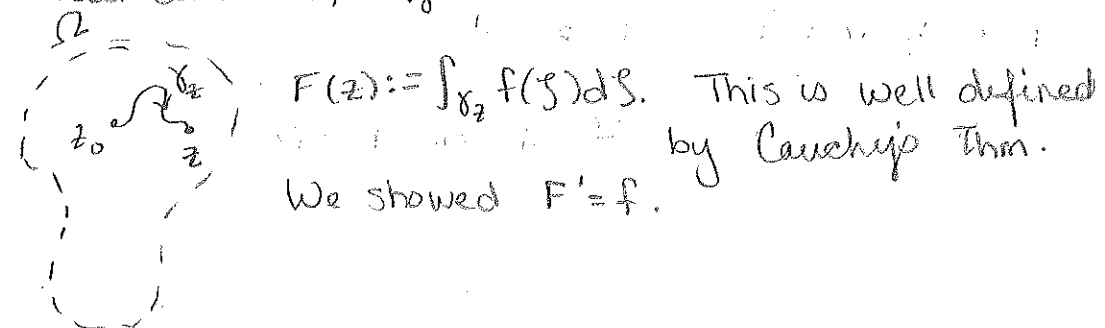 Ω
γ_z
z₀
z
F(z):=∫_{γ_z} f(ζ)dζ. This is well defined
by Cauchy's Thm.
We showed F'=f.